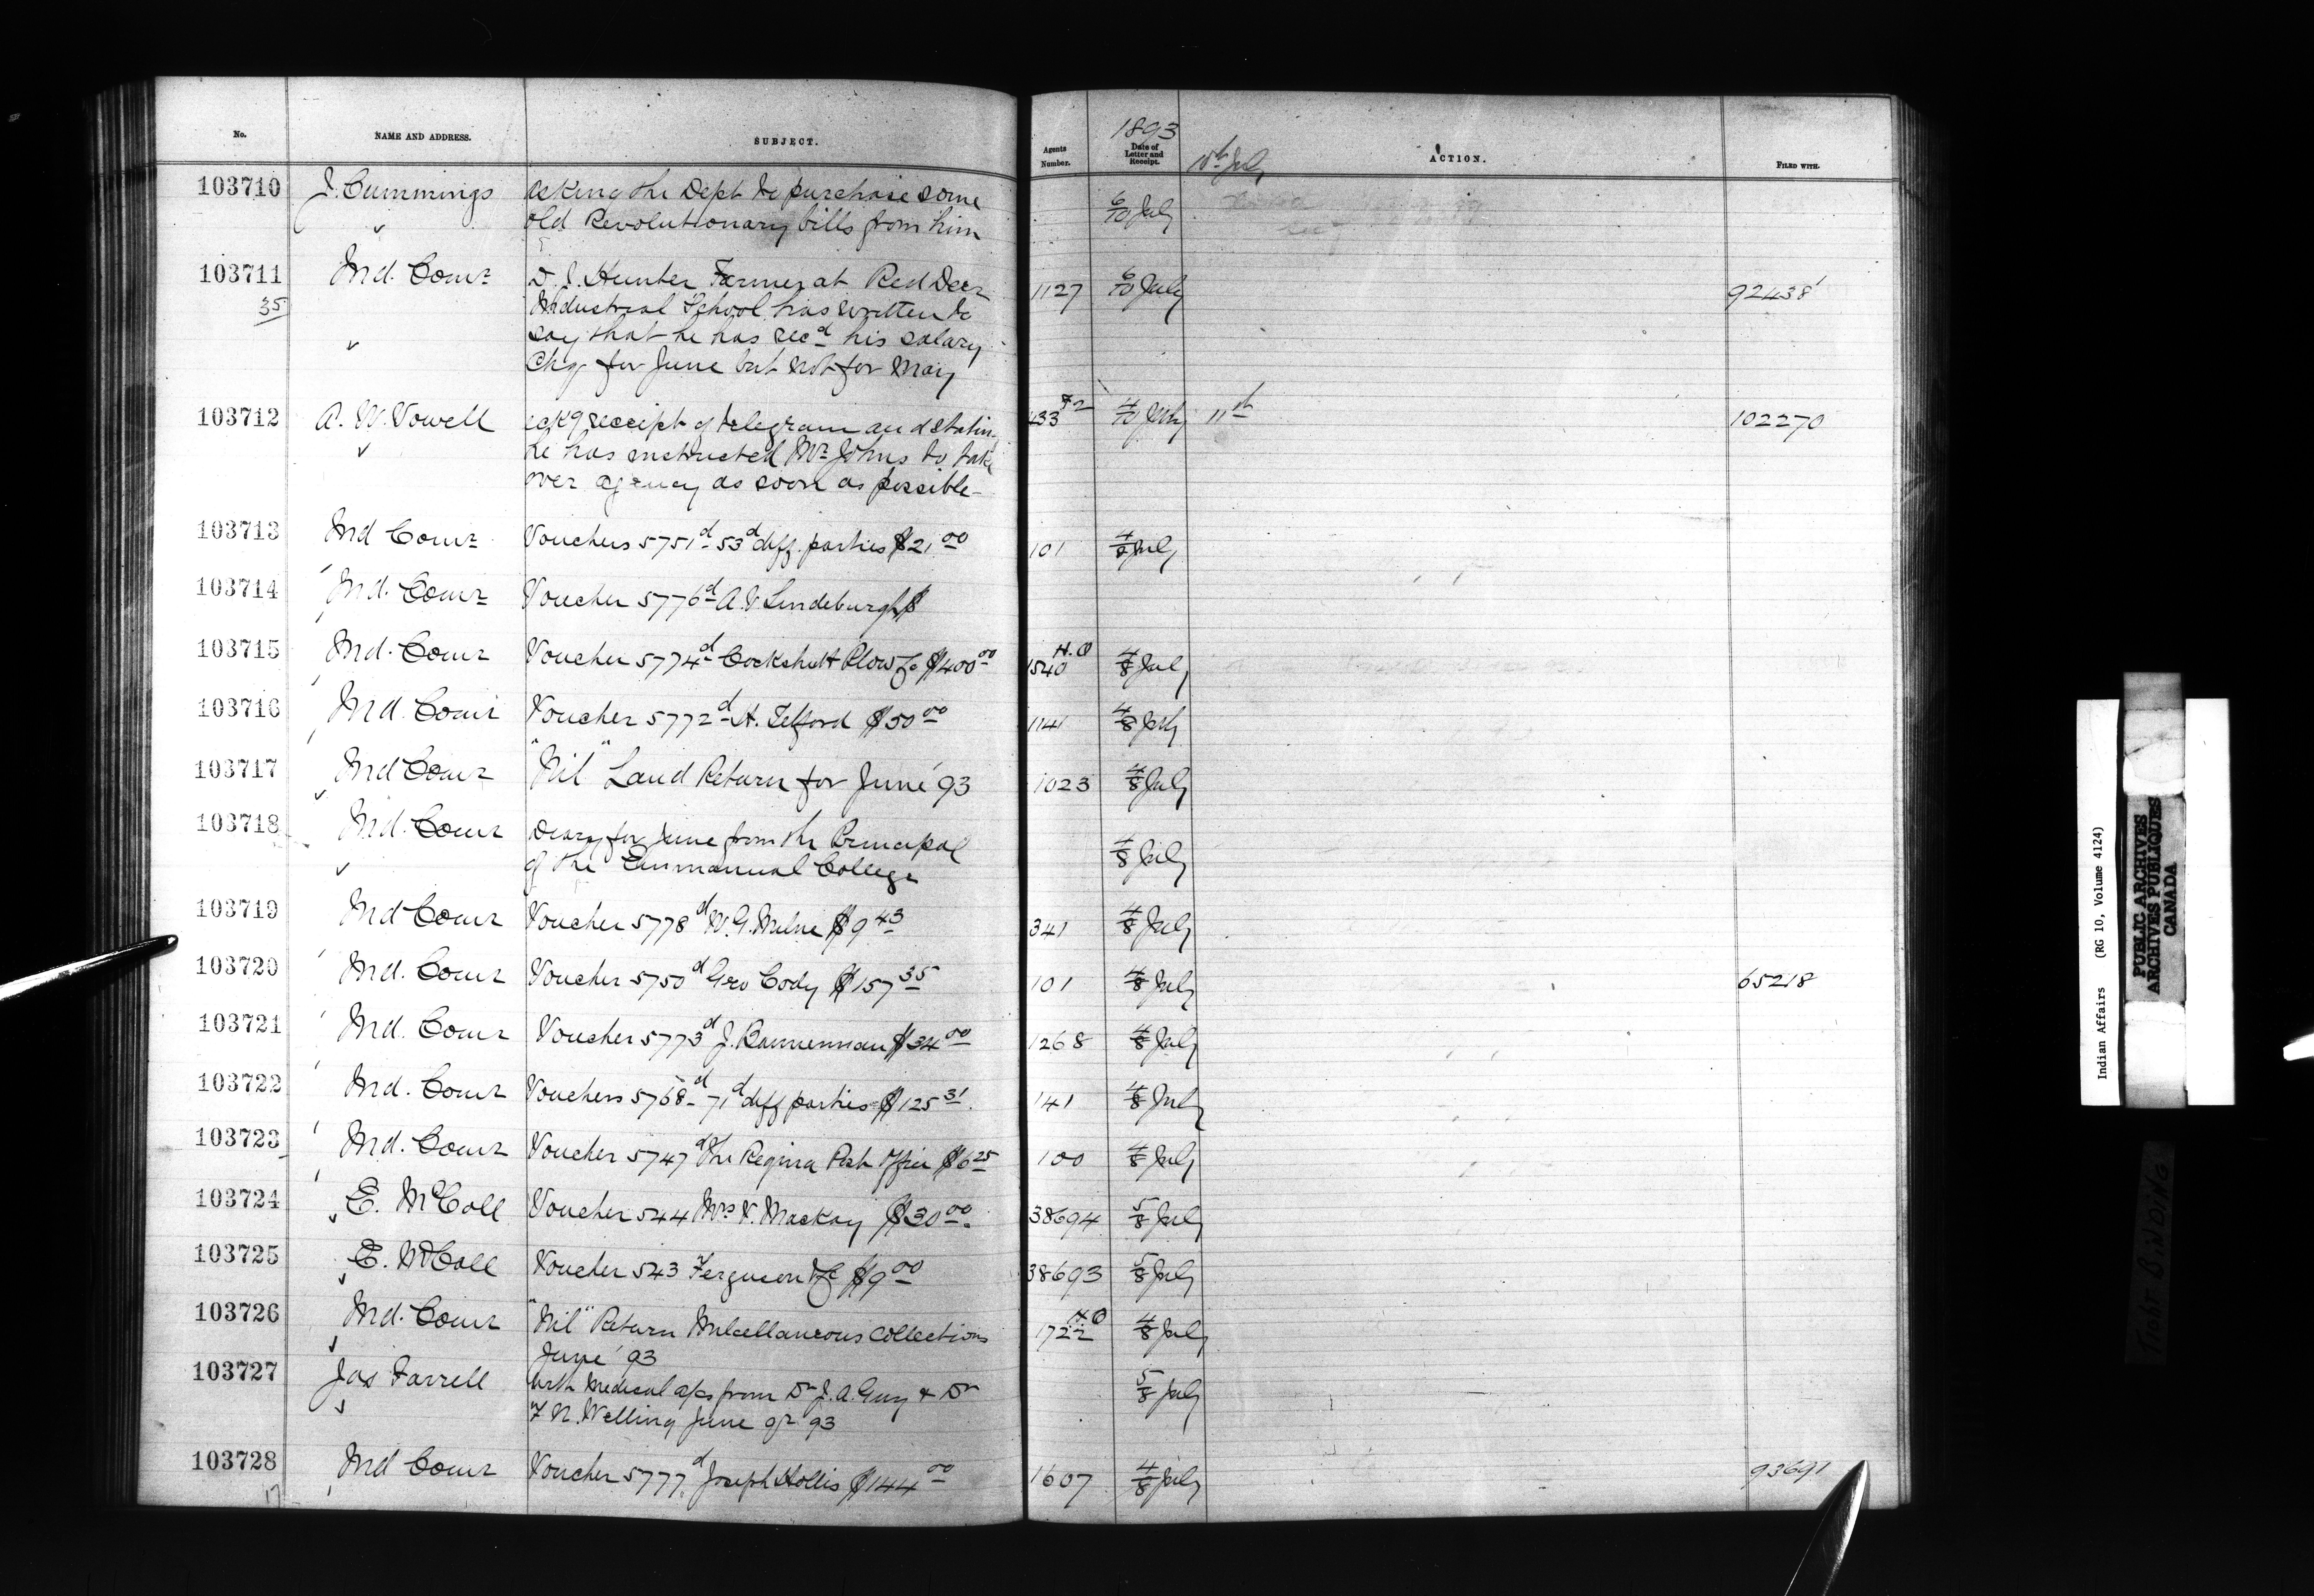 No.
NAME AND ADDRESS.
SUBJECT.
Agents
Number.
1893
Date of
Letter and
Receipt.
10th July
ACTION.
FILED WITH.
103710
J. Cummings
asking the Dept to purchase some
old Revolutionary bills from him
6/10 July
103711
35
Ind. Comr
D. J. Hunter Farmer at Red Deer
Industrial School has written to
say that he has recd his salary
Chq for June but not for May
1127
6/10 July
92438
103712
A. W. Vowell
ackg receipt of telegram and statin
he has instructed Mr Johns to take
over agency as soon as possible
433 F2
4/10 July
11th
102270
103713
Ind Comr
Vouchers 5751d - 53d diff. parties $21.00
101
4/8 July
103714
Ind. Comr
Voucher 5776d A. V Lindeburgh $
103715
Ind. Comr
Voucher 5774d Cockshutt Plow Co $400.00
H.O
1540
4/8 July
103716
Ind. Comr
Voucher 5772d H. Telford $50.00
1141
4/8 July
103717
Ind Comr
"Nil" Land Return for June '93
1023
4/8 July
103718
Ind. Comr
Diary for June from the Principal
of the Emmanual College
4/8 July
103719
Ind Comr
Voucher 5778d W. G. Milne $9.43
341
4/8 July
103720
Ind. Comr
Voucher 5750d Geo Cody $157.35
101
4/8 July
65218
103721
Ind. Comr
Voucher 5773d J. Bannerman $34.00
1268
4/8 July
103722
Ind. Comr
Vouchers 5768d - 71d diff parties $125.31
141
4/8 July
103723
Ind. Comr
Voucher 5747d The Regina Post Office $6.25
100
4/8 July
103724
E. McColl
Voucher 544 Mrs V. Mackay $30.00
38694
5/8 July
103725
E. McColl
Voucher 543 Ferguson & Co $9.00
38693
5/8 July
103726
Ind. Comr
"Nil" Return Miscellaneous Collections
June '93
H.O
1722
4/8 July
103727
Jas Farrell
With Medical a/cs from Dr J. A. Guy & Dr
F N. Welling June qr 93
5/8 July
103728
17
Ind Comr
Voucher 5777d Joseph Hollis $144.00
1607
4/8 July
93691
Indian Affairs (RG 10, Volume 4124)
PUBLIC ARCHIVES
ARCHIVES PUBLIQUES
CANADA
TIGHT BINDING